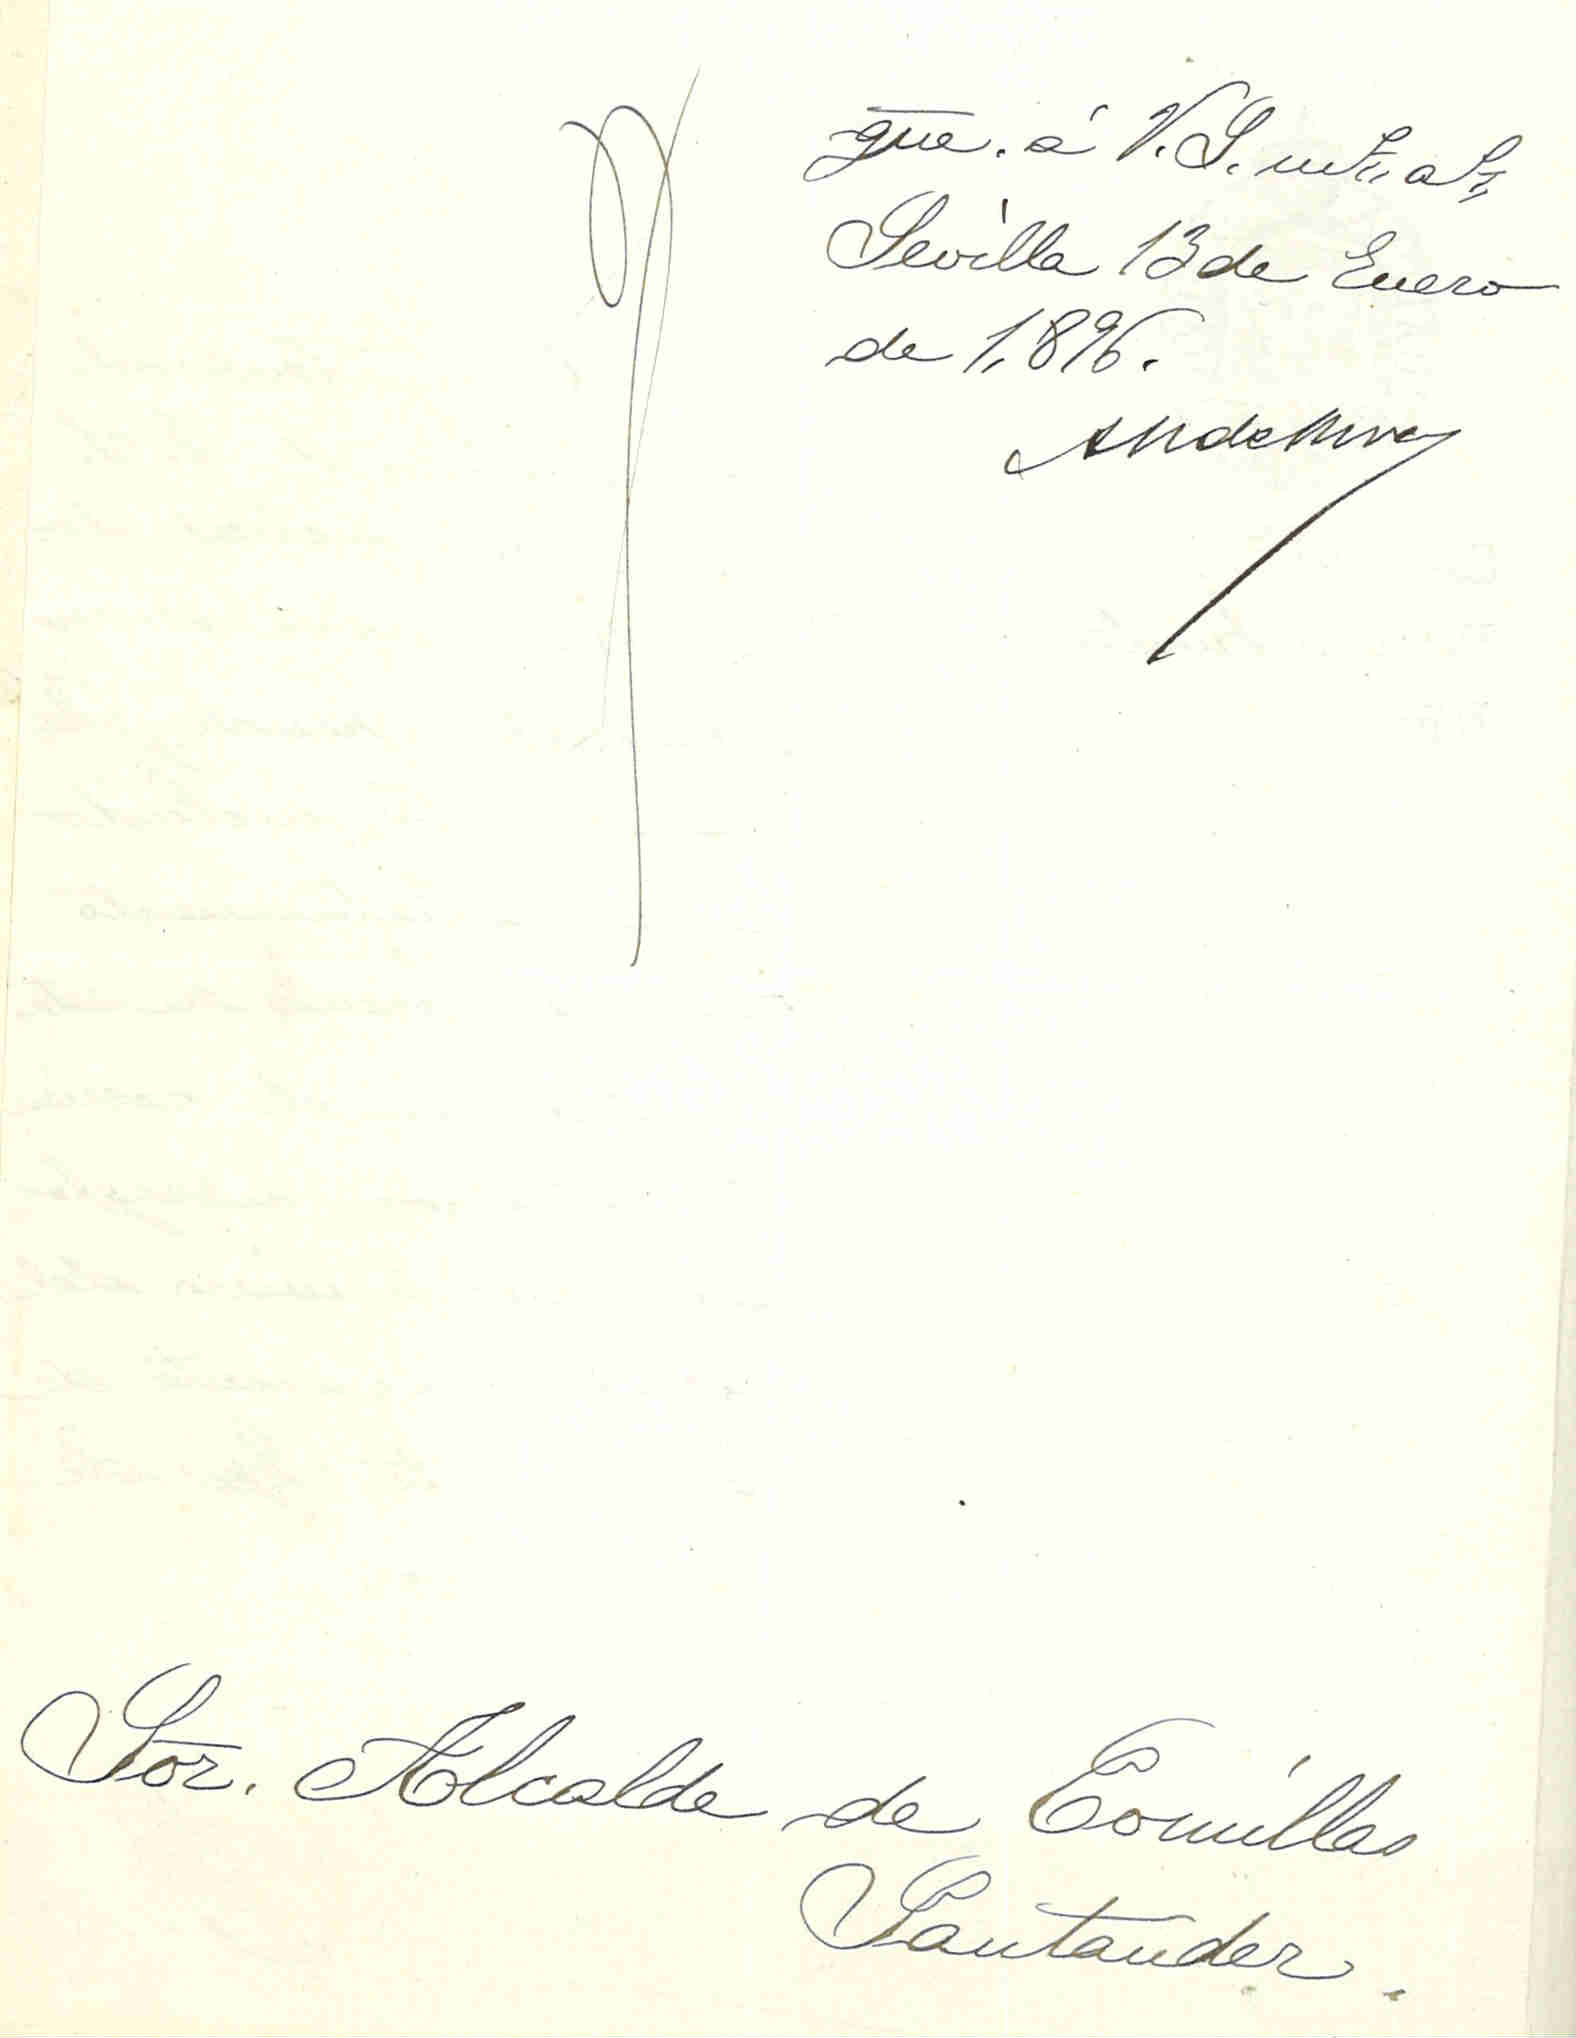 gue. á V.S. ms. as.
Sevilla 13 de Enero
de 1,896.
Sor. Alcalde de Comillas
Santander.